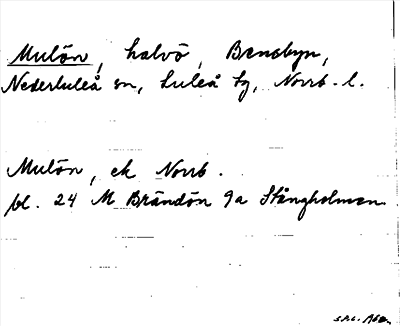 Mulön, halvö, Bensbyn,
Nederluleå sn, Luleå tg, Norrb. l.
Mulön, ek Norrb.
bl. 24 M Brändön 9a Stångholmen